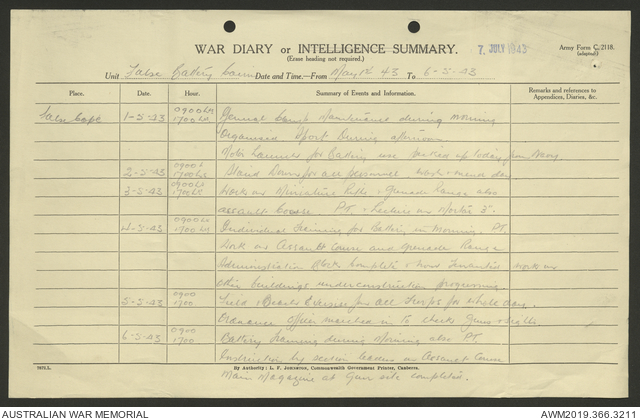 WAR DIARY or INTELLIGENCE SUMMARY.
7 JULY 1943
Army Form C. 2118.
(adapted)
(Erase heading not required.)
Unit False Battery Date and Time.—From May 1st 43 To 6-5-43
Place. Date. Hour. Summary of Events and Information. Remarks and references to Appendices, Diaries, &c.
False Cape 1-5-43 0900 hrs General Camp Maintenance during morning
1700 hrs
Organised Sport During afternoon
Motor Launch for Battery was up today from
2-5-43 0900 1700 hrs Stand Down for all personnel.
3-5-43 0900 hrs 1700 hrs Work on Miniature Rifle & Grenade Range also
assault course. P.T. & Lecture on Mortar 3".
4-5-43 0900 hrs 1700 hrs Individual Training for Battery in Morning. P.T.
Work on Assault Course and Grenade Range
Administration Block Complete & work on
other buildings under construction progressing.
5-5-43 0900 1700 Field & Beach Exercise for all Troops for whole day.
Ordnance Officer to check Guns & sights.
6-5-43 0900 1700 Battery Training during Morning also P.T.
Instruction by section leaders on Assault Course
Main Magazine at Gun site completed.
7970.L.
By Authority: L. F. Johnston, Commonwealth Government Printer, Canberra.
AUSTRALIAN WAR MEMORIAL
AWM2019.366.3211